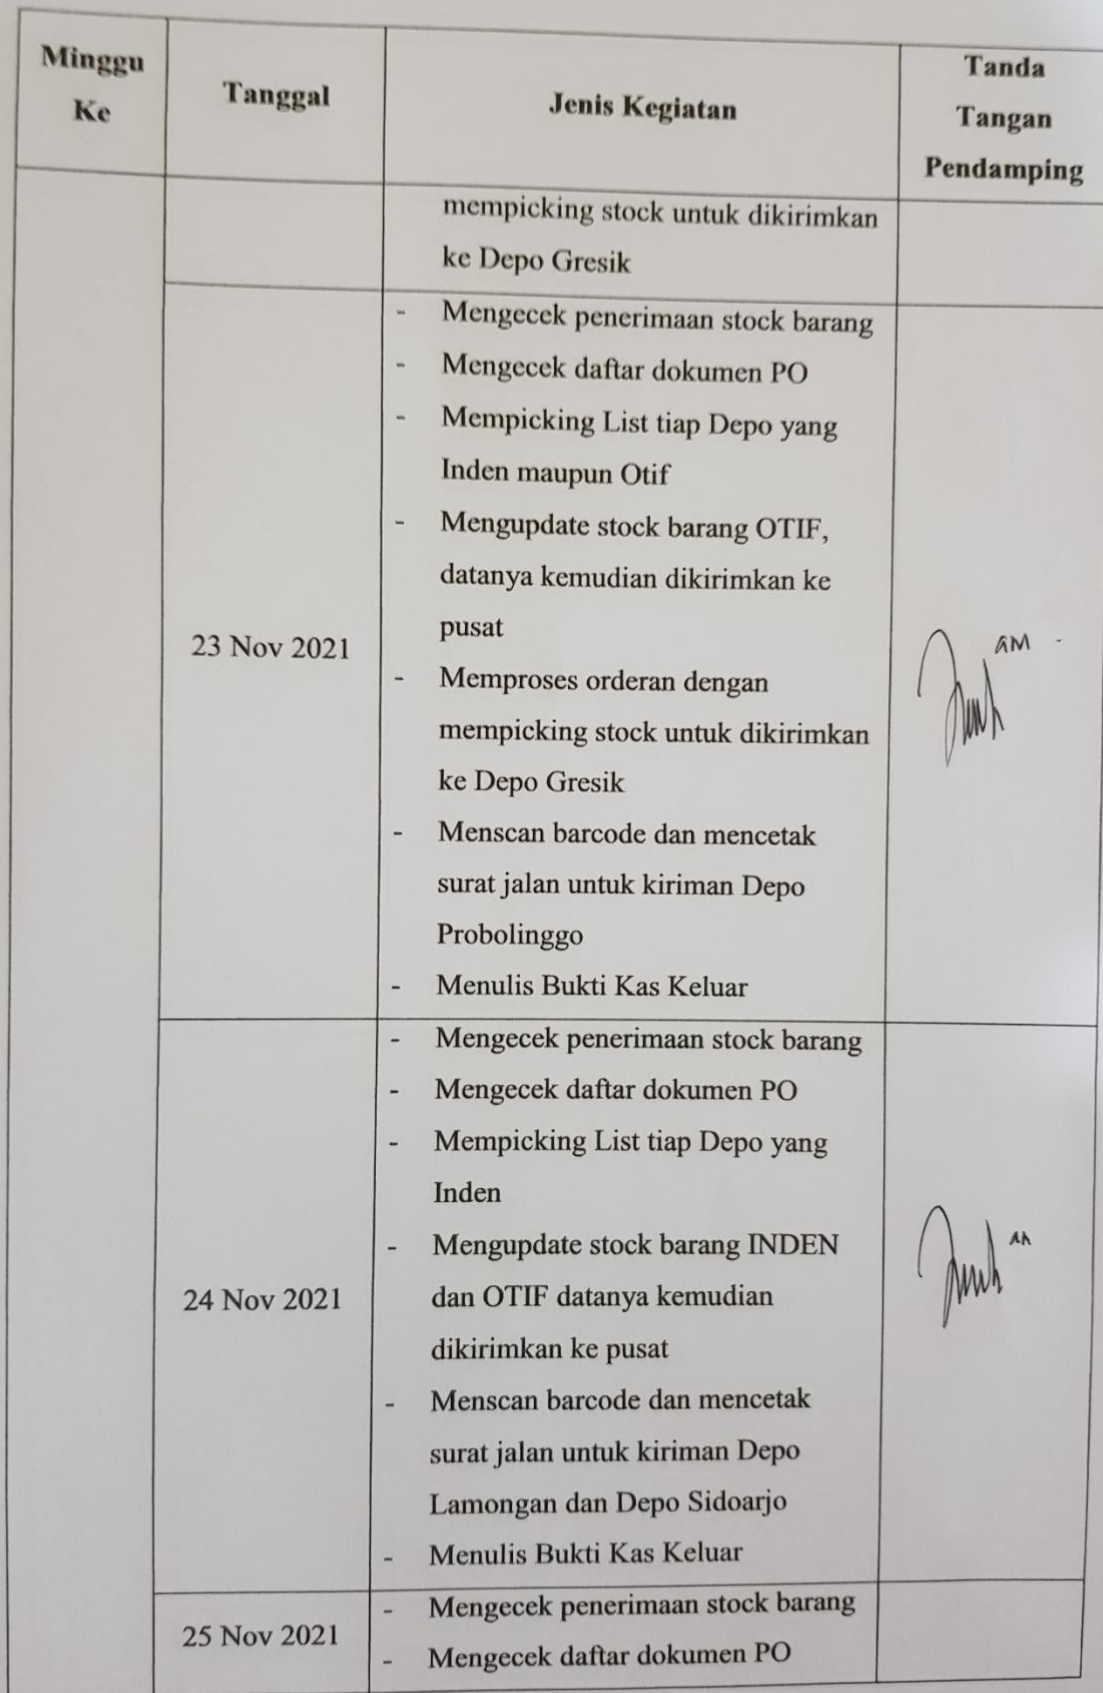 Minggu
Ke
Tanggal
Jenis Kegiatan
Tanda
Tangan
Pendamping
mempicking stock untuk dikirimkan
ke Depo Gresik
23 Nov 2021
- Mengecek penerimaan stock barang
- Mengecek daftar dokumen PO
- Mempicking List tiap Depo yang
Inden maupun Otif
- Mengupdate stock barang OTIF,
datanya kemudian dikirimkan ke
pusat
- Memproses orderan dengan
mempicking stock untuk dikirimkan
ke Depo Gresik
- Menscan barcode dan mencetak
surat jalan untuk kiriman Depo
Probolinggo
- Menulis Bukti Kas Keluar
AM
24 Nov 2021
- Mengecek penerimaan stock barang
- Mengecek daftar dokumen PO
- Mempicking List tiap Depo yang
Inden
- Mengupdate stock barang INDEN
dan OTIF datanya kemudian
dikirimkan ke pusat
- Menscan barcode dan mencetak
surat jalan untuk kiriman Depo
Lamongan dan Depo Sidoarjo
- Menulis Bukti Kas Keluar
25 Nov 2021
- Mengecek penerimaan stock barang
- Mengecek daftar dokumen PO